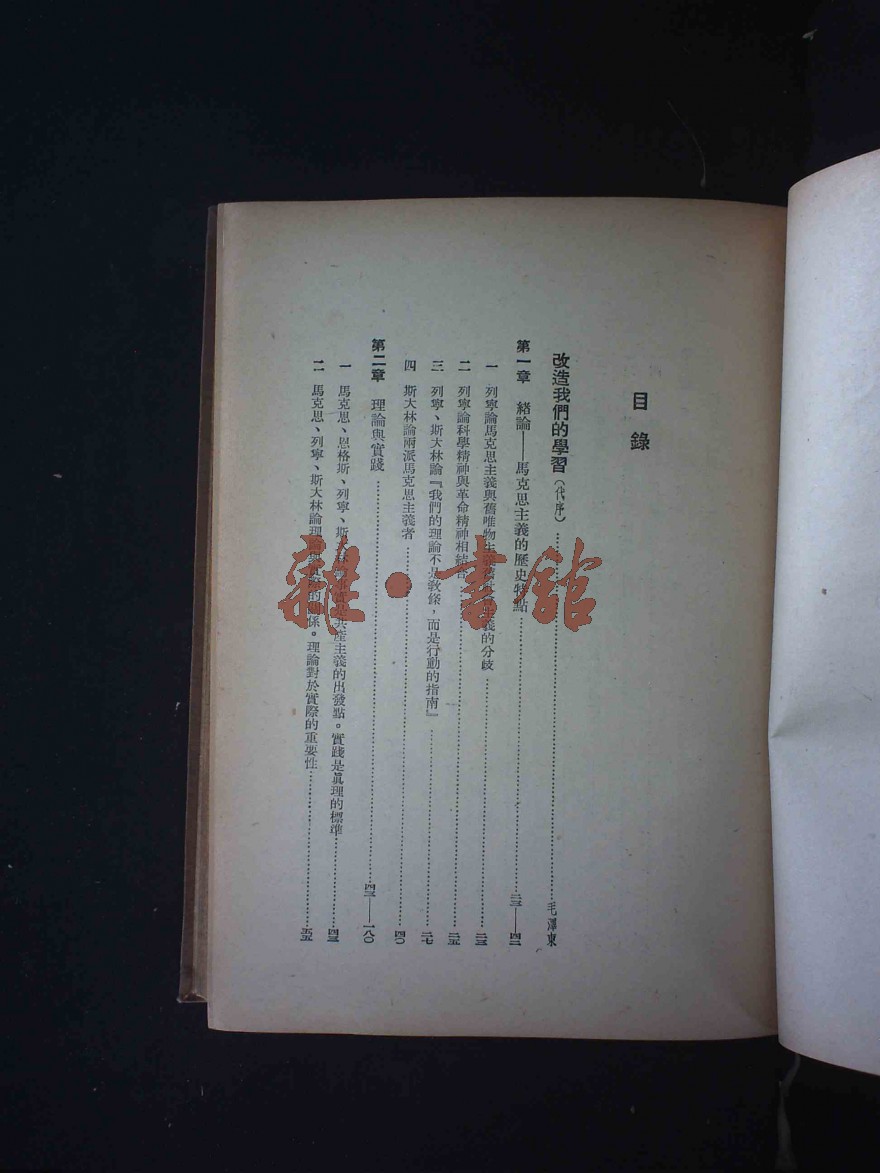 目錄
改造我們的學習(代序)……毛澤東
第一章 緒論——馬克思主義的歷史特點……二三—四二
一 列寧論馬克思主義與舊唯物主義舊社會主義的分歧……二三
二 列寧論科學精神與革命精神相結合……二五
三 列寧、斯大林論『我們的理論不是教條，而是行動的指南』……二七
四 斯大林論兩派馬克思主義者……四〇
第二章 理論與實踐……四三—一八〇
一 馬克思、恩格斯、列寧、斯大林 共產主義的出發點。實踐是眞理的標準……四三
二 馬克思、列寧、斯大林論理論與實際的關係。理論對於實際的重要性……五五
雜·書館